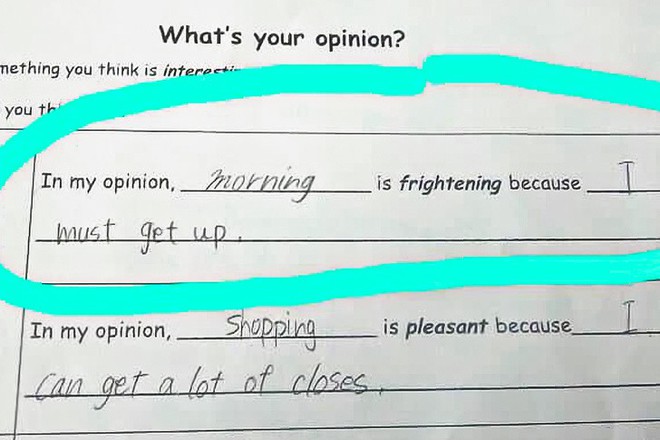 What's your opinion?
mething you think is
you
In my opinion, morning is frightening because I
must get up.
In my opinion, Shopping is pleasant because I
can get a lot of closes.